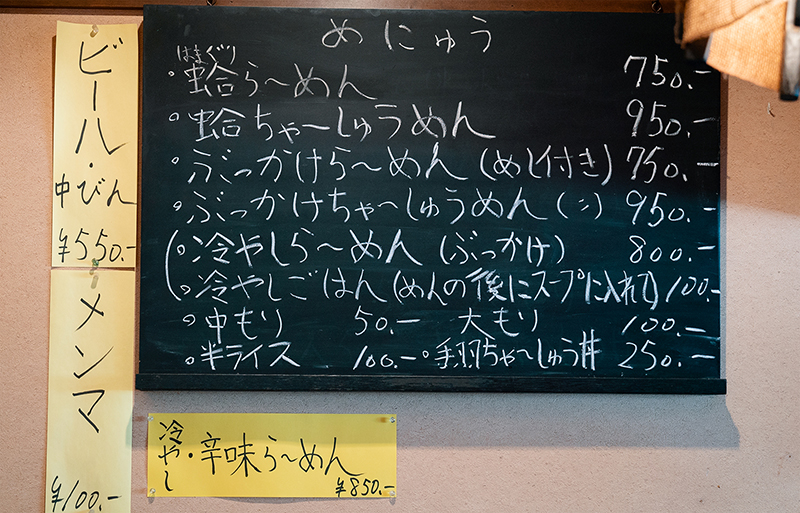 めにゅう
はまぐり
・蛤ら〜めん 750.-
・蛤ちゃ〜しゅうめん 950.-
・ぶっかけら〜めん(めし付き) 750.-
・ぶっかけちゃ〜しゅうめん(〃) 950.-
・冷やしら〜めん(ぶっかけ) 800.-
・冷やしごはん(めんの後にスープに入れて) 100.-
・中もり 50.- 大もり 100.-
・半ライス 100.- ・手羽ちゃ〜しゅう丼 250.-
ビール・中びん
¥550.-
メンマ
¥100.-
冷やし・辛味ら〜めん
¥850.-